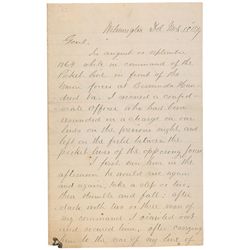 Wilmington Del Nov 10
Gent.
In august or september
1864 while in command of the
Picket line in front of the
forces at Bermuda Hun
dred Va. I rescued a confed
erate Officer who had been
wounded in a charge on our
lines on the previous night and
left on the field between the
picket lines of the opposing forces
I first saw him in the
afternoon he would rise again
and again, take a step or two,
then stumble and fall: after
dark with two or three men of
my command I crawled out
and secured him, after carrying
him to the rear of my line of